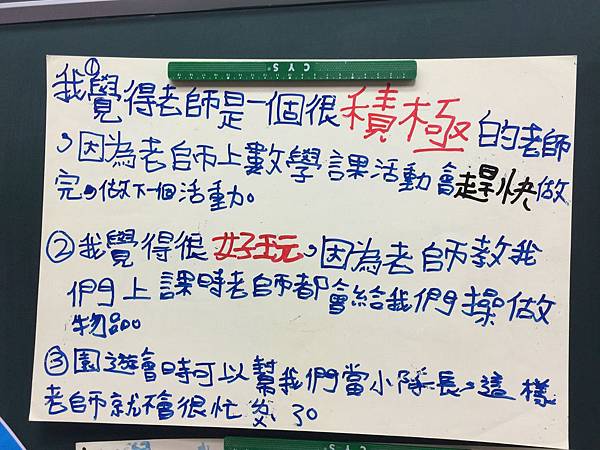 CYS
①我覺得老師是一個很積極的老師
,因為老師上數學課活動會趕快做
完,做下一個活動。
②我覺得很好玩,因為老師教我
們上課時老師都會給我們操做
物品。
③園遊會時可以幫我們當小隊長,這樣
老師就不會很忙 30